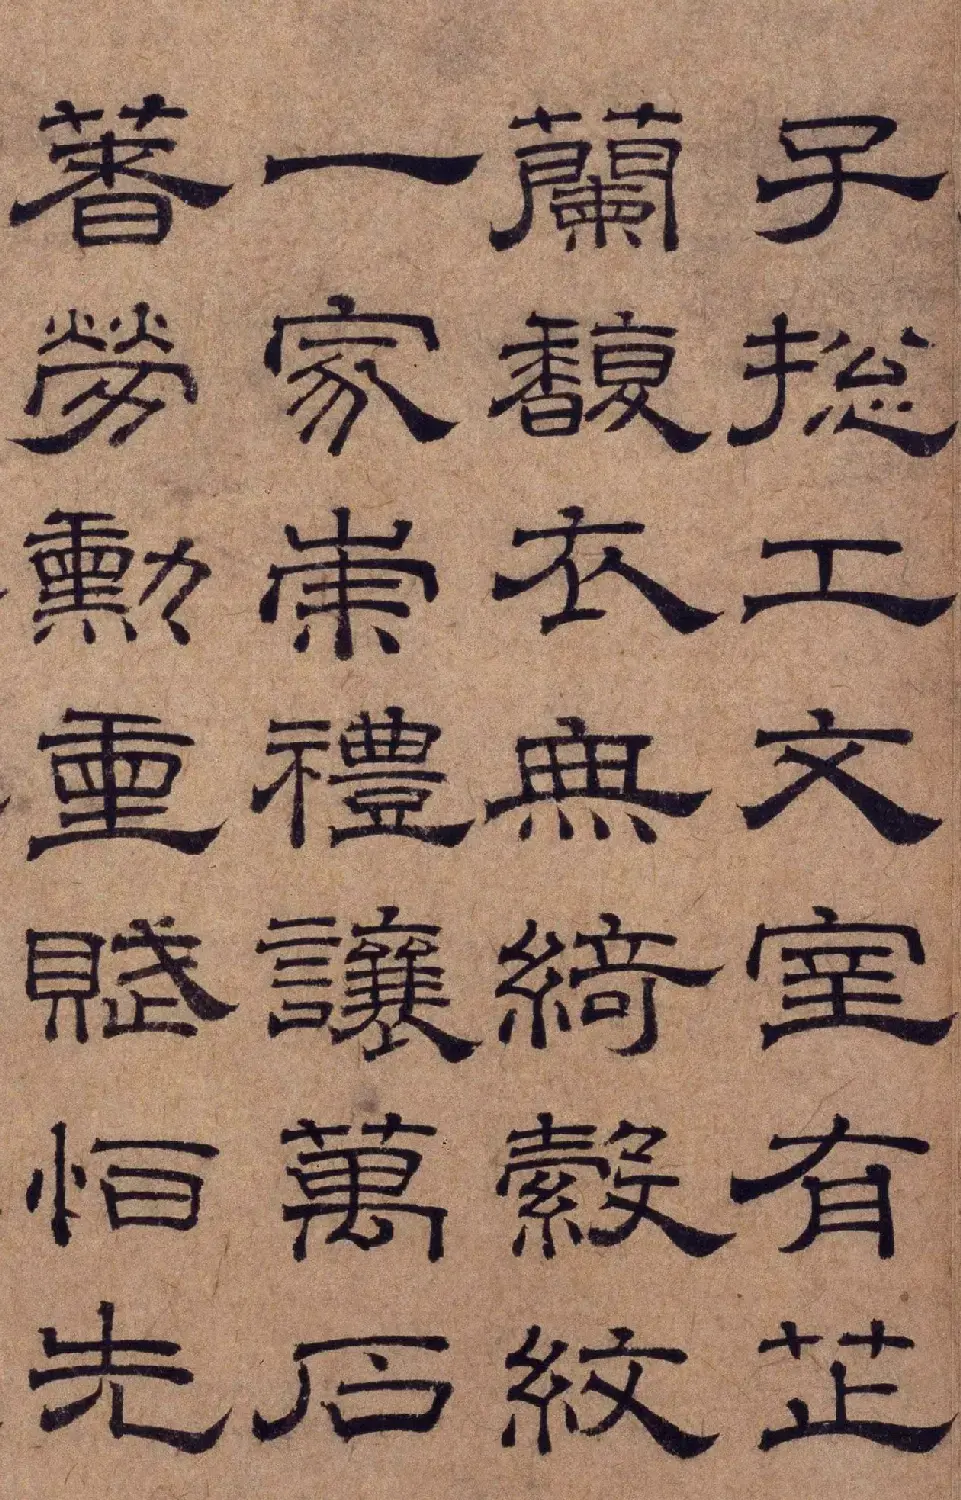 子揔工文室有芷
蘭馥衣無綺縠紋
一家崇禮讓萬石
著勞勳重賦恒先